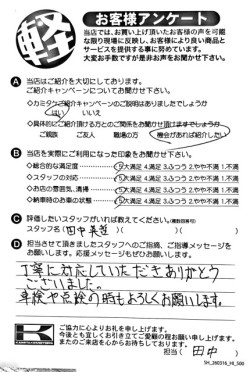 軽
お客様アンケート
当店では、お買い上げ頂いたお客様の声を可能
な限り現場に反映し、お客様により良い商品と
サービスを提供する事に努めています。
大変お手数ですが是非お声をお聞かせ下さい。
A 当店はご紹介を大切にしております。
ご紹介キャンペーンについてお聞かせ下さい。
◇カミタケご紹介キャンペーンのご説明はありましたでしょうか
はい いいえ
◇具体的にご紹介頂ける方とのご関係をお聞かせ頂けますでしょうか
ご親族 ご友人 職場の方 機会があれば紹介したい
B 当店を実際にご利用になった印象をお聞かせ下さい。
◇総合的な満足度 5大満足 4.満足 3.ふつう 2.やや不満 1.不満
◇スタッフの対応 5大満足 4.満足 3.ふつう 2.やや不満 1.不満
◇お店の雰囲気、清掃 5大満足 4.満足 3.ふつう 2.やや不満 1.不満
◇納車時のお車の状態 5大満足 4.満足 3.ふつう 2.やや不満 1.不満
C 評価したいスタッフがいれば教えてください。(複数回答可)
スタッフ名( 田中
D 担当させて頂きましたスタッフへのご指摘、ご指導メッセージを
お願いします。応援メッセージもぜひお願いします。
丁寧に対応していただきありがとう
ございました。
車検や点検の時もよろしくお願いします。
K
ご協力に心よりお礼を申し上げます。
今後とも宜しくお引き立てご愛顧の程お願い申し上げます。
またのご来店を心からお待ちしております。
担当( 田中 )
SH_260316_NI_500